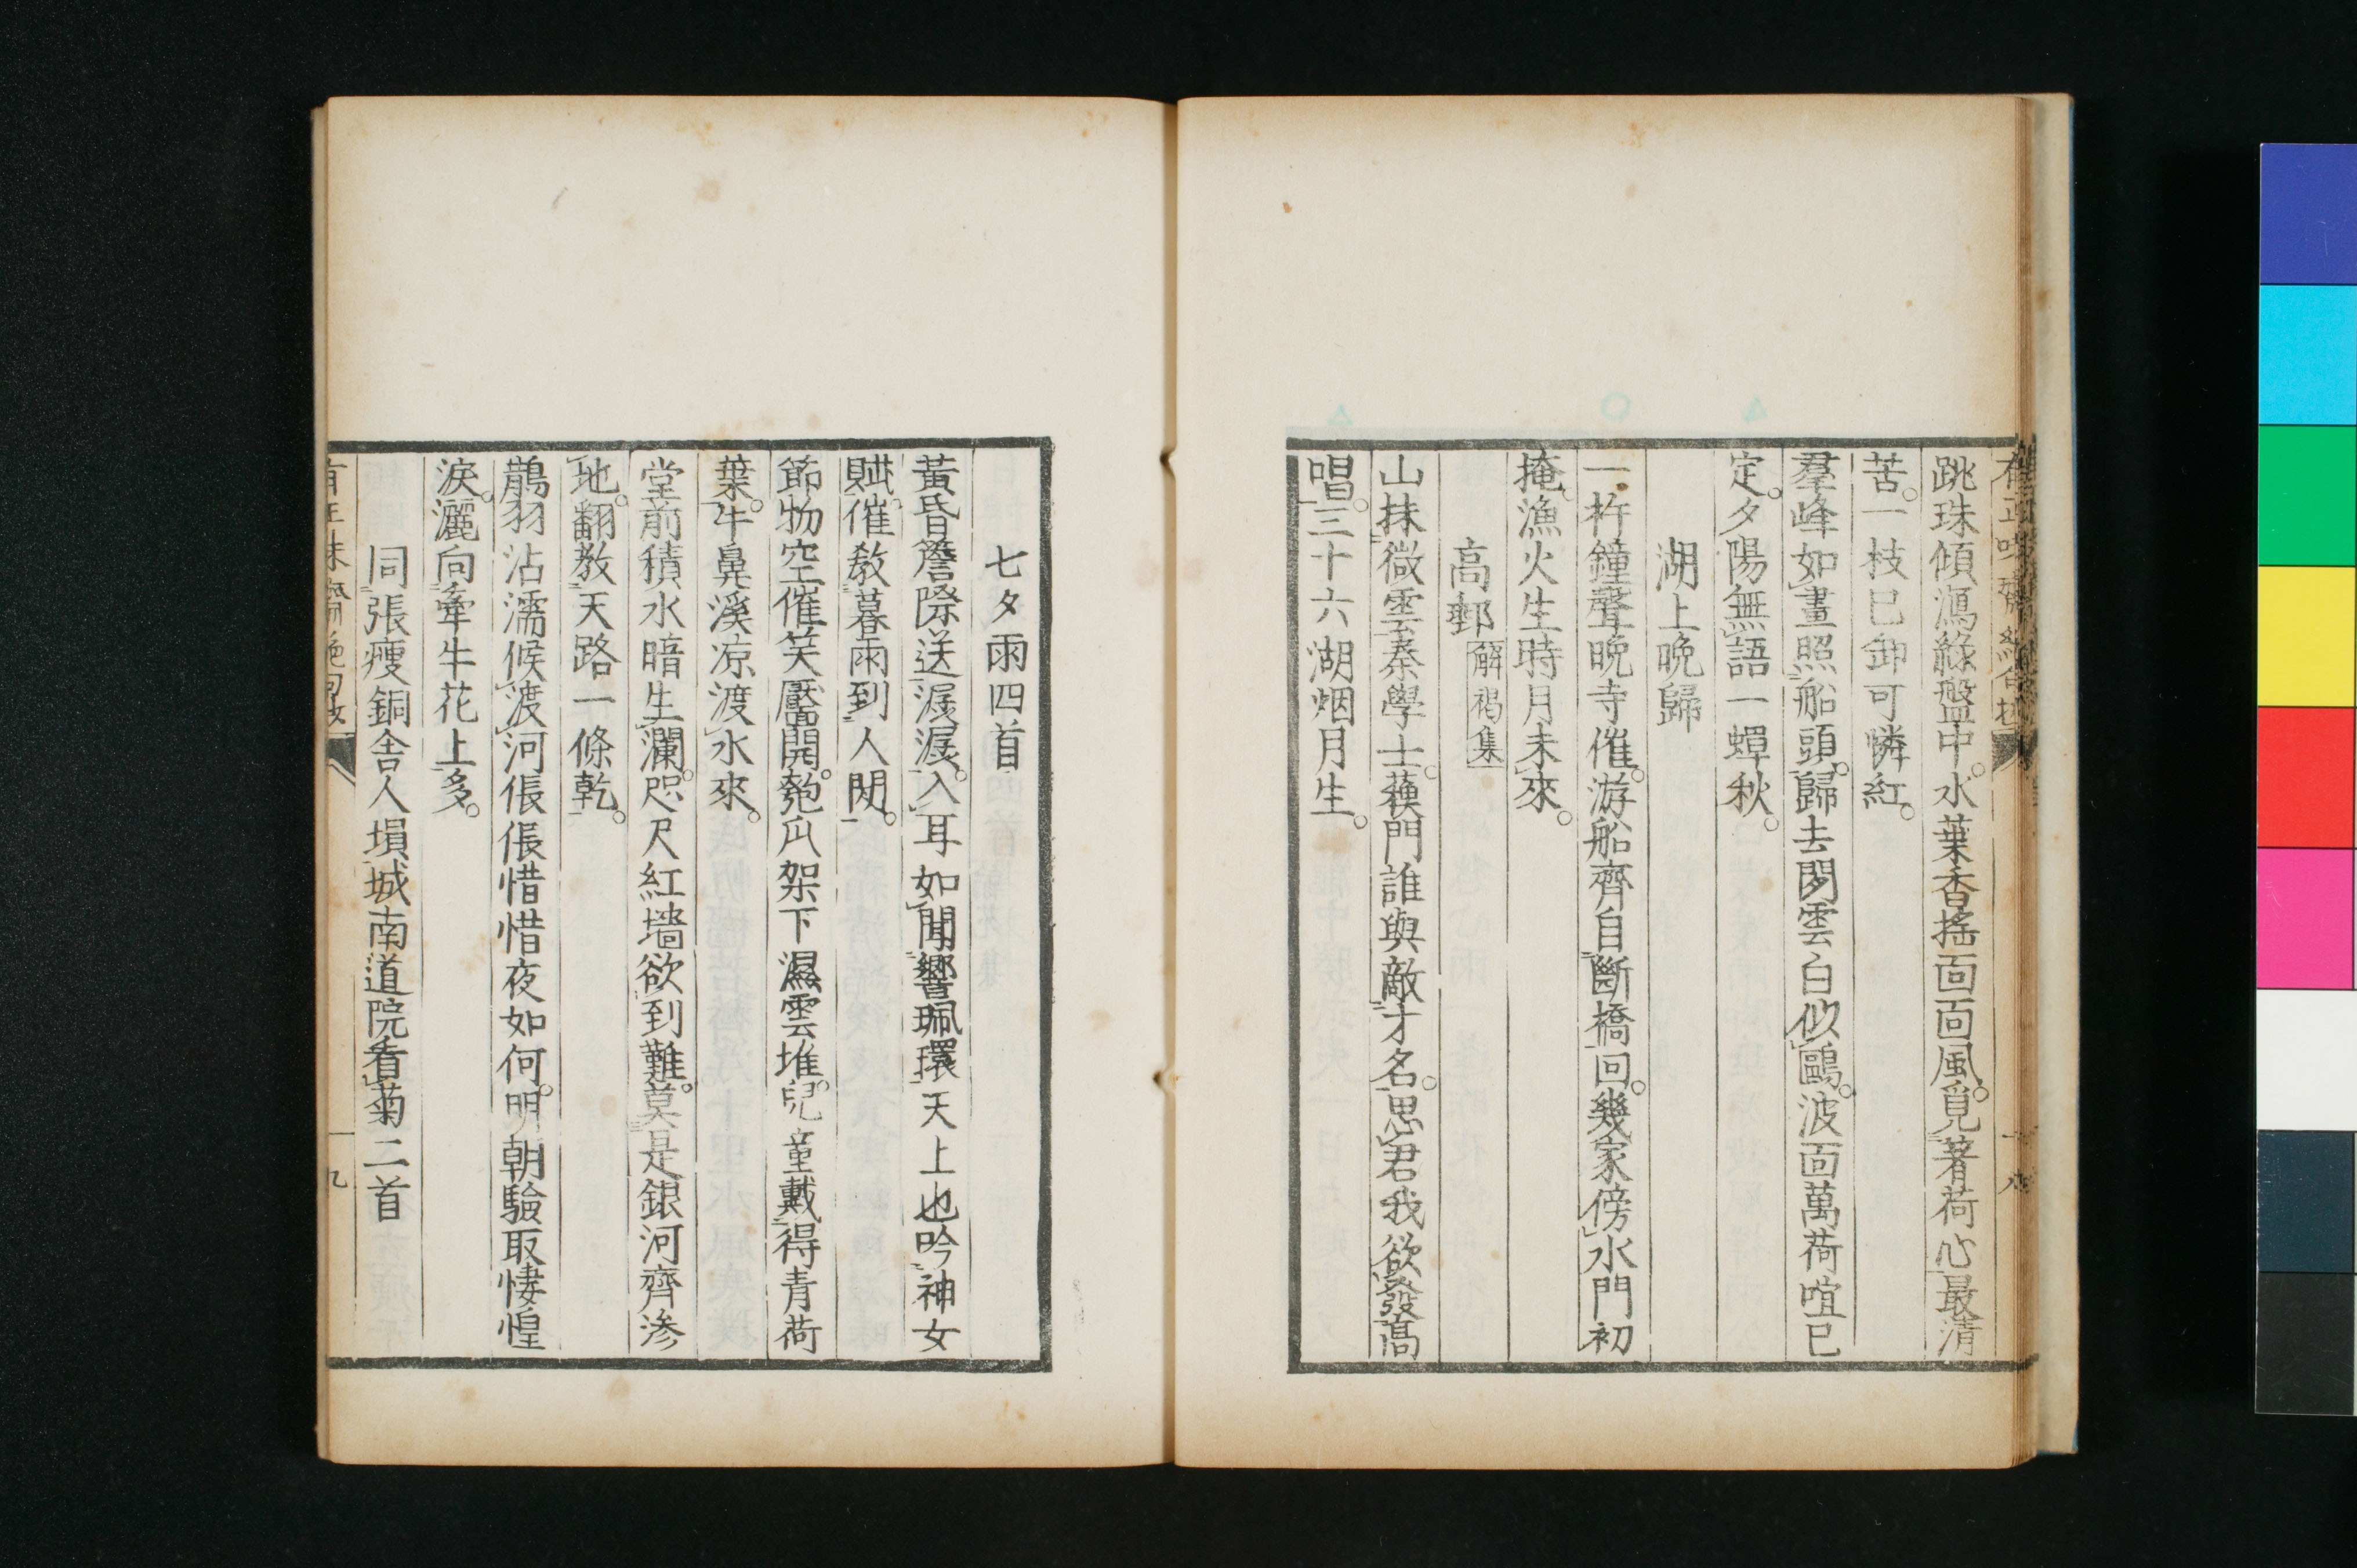 跳珠傾瀉綠盤中。水葉香搖面面風。覓著荷心最淸
苦。一枝已卸可憐紅。
羣峰如畫照船頭。歸去閑雲白似鷗。波面萬荷喧已
定。夕陽無語一蟬秋。
湖上晚歸
一杵鐘聲晚寺催。游船齊自斷橋回。幾家傍水門初
掩。漁火生時月未來。
高郵 解褐集
山抹微雲秦學士。蘇門誰與敵才名。思君我欲發高
唱。三十六湖烟月生。
七夕雨四首
黃昏簷隙送潺湲。入耳如聞響珮環。天上也吟神女
賦。催敎暮雨到人閒。
節物空催笑靨開。匏瓜架下濕雲堆。兒童戴得靑荷
葉。牛鼻溪凉渡水來。
堂前積水暗生瀾。咫尺紅墻欲到難。莫是銀河齊渗
地。翻敎天路一條乾。
鵲羽沾濡候渡河。倀倀惜惜夜如何。明朝驗取悽惶
淚。灑向牽牛花上多。
同張瘦銅舍人塤城南道院看菊二首
九